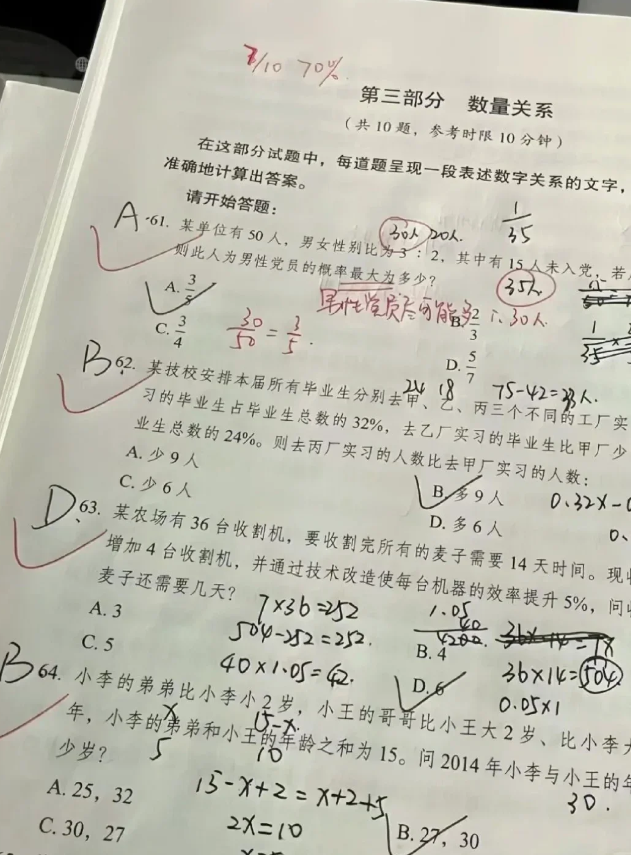 7/10 70%
第三部分 数量关系
(共10题,参考时限10分钟)
在这部分试题中,每道题呈现一段表述数字关系的文字,
准确地计算出答案。
请开始答题:
1/35
A
30人 20人.
61. 某单位有50人,男女性别比为3:2,其中有15人未入党,若
则此人为男性党员的概率最大为多少?
35人
A. 3/5
B. 2/3
男性党员尽可能多 ∴30人
C. 3/4
30/50 = 3/5.
D. 5/7
1/35
B
24 18 75-42=33人.
62. 某技校安排本届所有毕业生分别去甲、乙、丙三个不同的工厂实
习的毕业生占毕业生总数的32%,去乙厂实习的毕业生比甲厂少
业生总数的24%。则去丙厂实习的人数比去甲厂实习的人数:
A. 少9人
B. 多9人
0.32x-0
C. 少6人
D. 多6人
0.
D
63. 某农场有36台收割机,要收割完所有的麦子需要14天时间。现
增加4台收割机,并通过技术改造使每台机器的效率提升5%,问
麦子还需要几天?
7×36=252
1.05
40
4200
36×14=7x
A. 3
B. 4
504-252=252.
36×14=504
C. 5
D. 6
40×1.05=42.
0.05×1
B
64. 小李的弟弟比小李小2岁,小王的哥哥比小王大2岁、比小李
x 15-x
年,小李的弟弟和小王的年龄之和为15。问2014年小李与小王的年
少岁?
5 10
30.
A. 25,32
B. 27,30
15-x+2=x+2+5
C. 30,27
2x=10